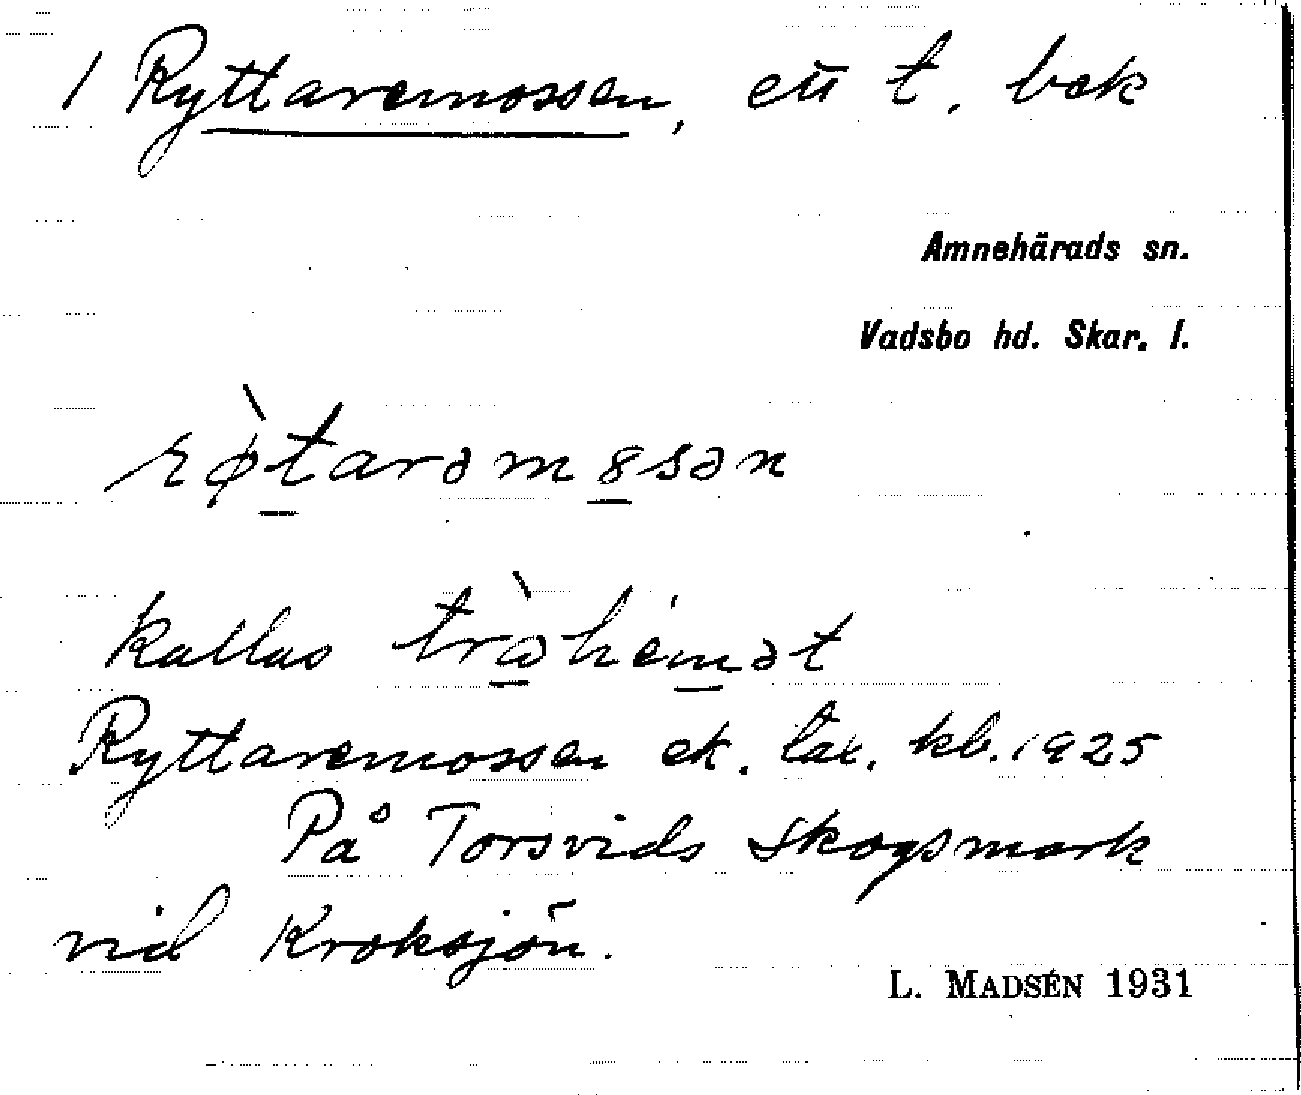 1 Ryttaremossen, ett t. bek
Amnehärads sn.
Vadsbo hd. Skar. l.
rø̀tarəmȣsən
kallas trə̀hemət
Ryttaremossen ek. tax. kb. 1925
På Torsvids skogsmark
vid Kroksjön.
L. MADSÉN 1931